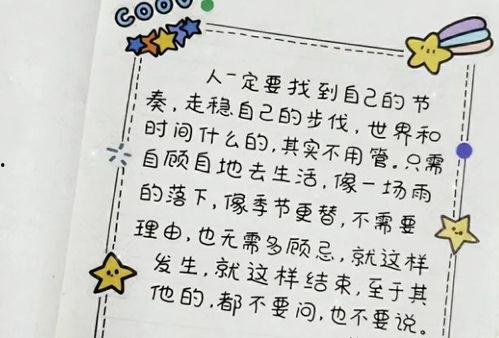 COOL
人一定要找到自己的节
奏，走稳自己的步伐，世界和
时间什么的，其实不用管。只需
自顾自地去生活，像一场雨
的落下，像季节更替，不需要
理由，也无需多顾忌，就这样
发生，就这样结束，至于其
他的，都不要问，也不要说。